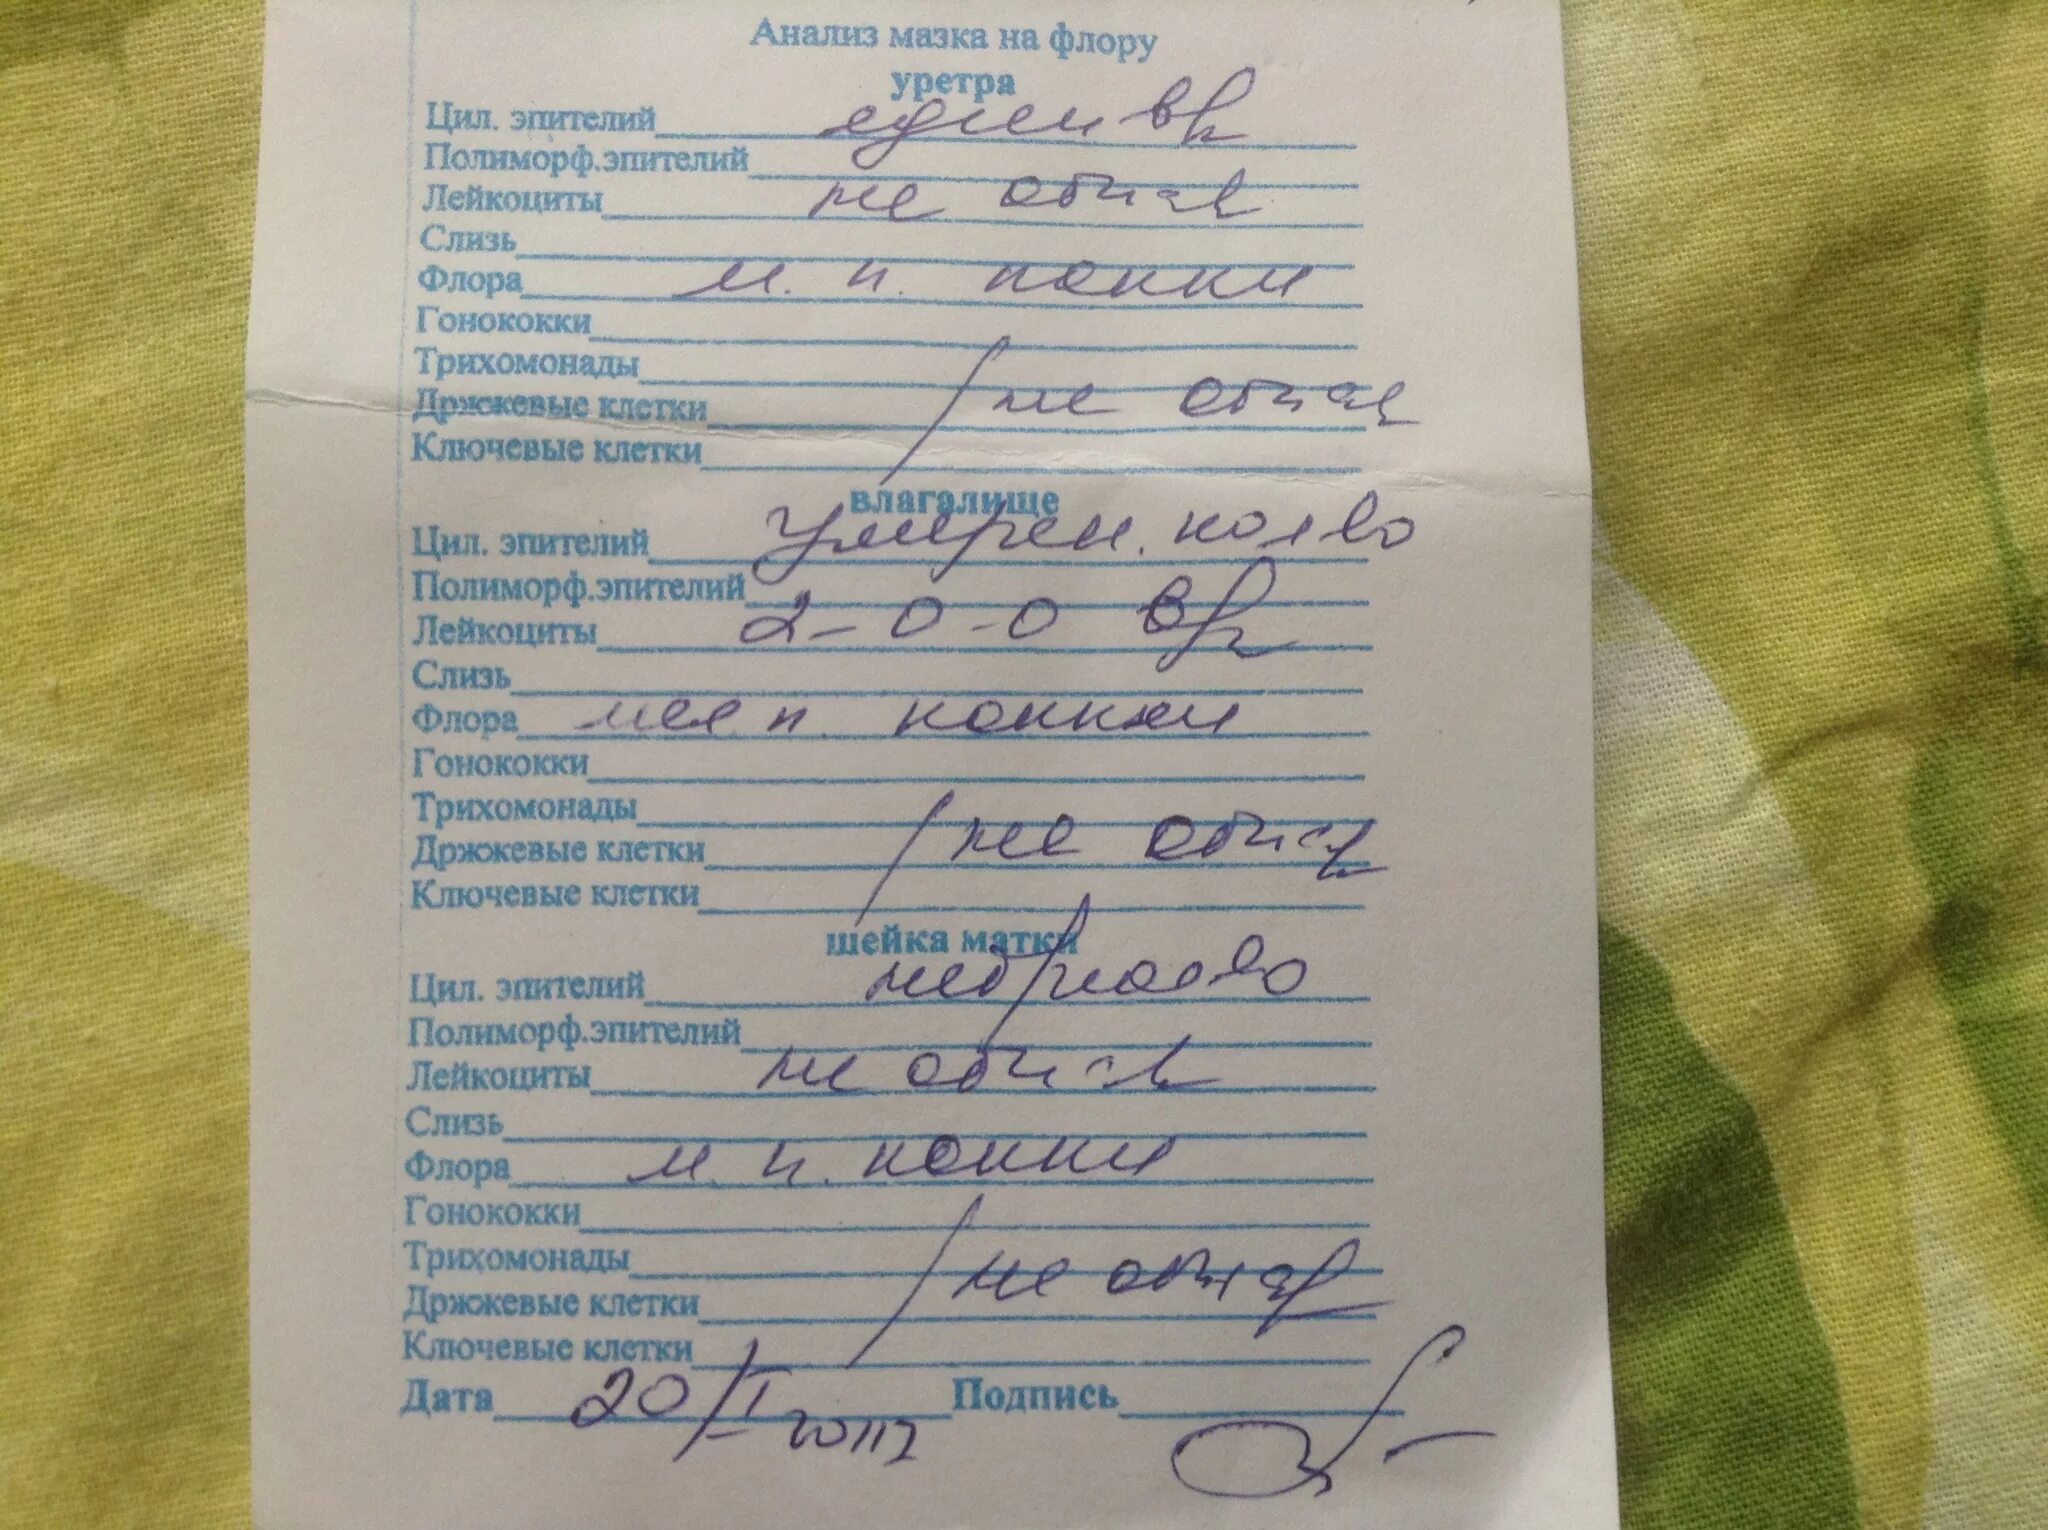 Анализ мазка на флору
уретра
Цил. эпителий един в
Полиморф.эпителий
Лейкоциты не обнар
Слизь
Флора м. п. кокки
Гонококки
Трихомонады
Држжевые клетки не обнар
Ключевые клетки
влагалище
Цил. эпителий умерен. кол во
Полиморф.эпителий
Лейкоциты 2-0-0 в
Слизь
Флора мел. п. кокки
Гонококки
Трихомонады
Држжевые клетки не обнар
Ключевые клетки
шейка матки
Цил. эпителий
Полиморф.эпителий
Лейкоциты не обнар
Слизь
Флора м. п. кокки
Гонококки
Трихомонады
Држжевые клетки не обнар
Ключевые клетки
Дата 20/I Подпись